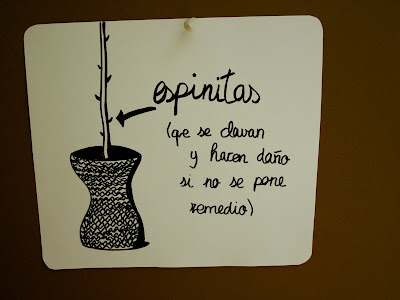 espinitas
(que se clavan
y hacen daño
si no se pone
remedio)